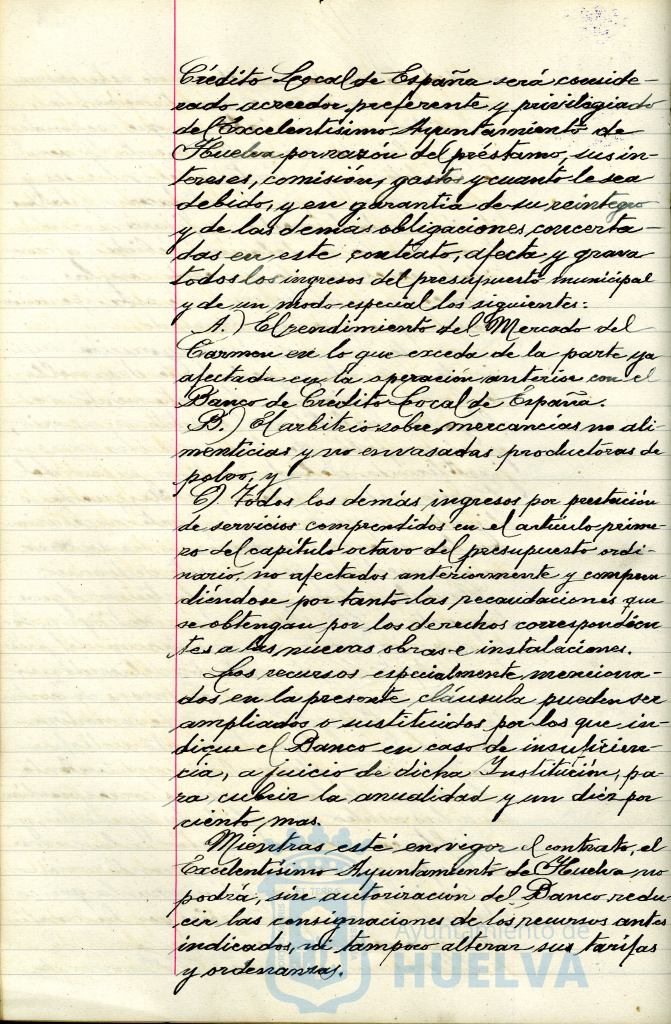 Crédito Local de España será conside-
rado acreedor preferente y privilegiado
del Excelentísimo Ayuntamiento de
Huelva por razón del préstamo, sus in-
tereses, comisión, gastos y cuanto le sea
debido, y en garantía de su reintegro
y de las demás obligaciones concerta-
das en este contrato, afecta y grava
todos los ingresos del presupuesto municipal
y de un modo especial los siguientes:
A.) El rendimiento del Mercado del
Carmen en lo que exceda de la parte ya
afectada en la operación anterior con el
Banco de Crédito Local de España.
B.) El arbitrio sobre mercancías no ali-
menticias y no envasadas productoras de
polvo, y
C) Todos los demás ingresos por prestación
de servicios comprendidos en el artículo prime-
ro del capítulo octavo del presupuesto ordi-
nario, no afectados anteriormente y compren-
diéndose por tanto las recaudaciones que
se obtengan por los derechos correspondien-
tes a las nuevas obras e instalaciones.
Los recursos especialmente menciona-
dos en la presente cláusula pueden ser
ampliados o sustituidos por los que in-
dique el Banco en caso de insuficien-
cia, a juicio de dicha Institución, pa-
ra cubrir la anualidad y un diez por
ciento mas.
Mientras esté en vigor el contrato, el
Excelentísimo Ayuntamiento de Huelva no
podrá, sin autorización del Banco redu-
cir las consignaciones de los recursos antes
indicados, ni tampoco alterar sus tarifas
y ordenanzas.
Ayuntamiento de
HUELVA